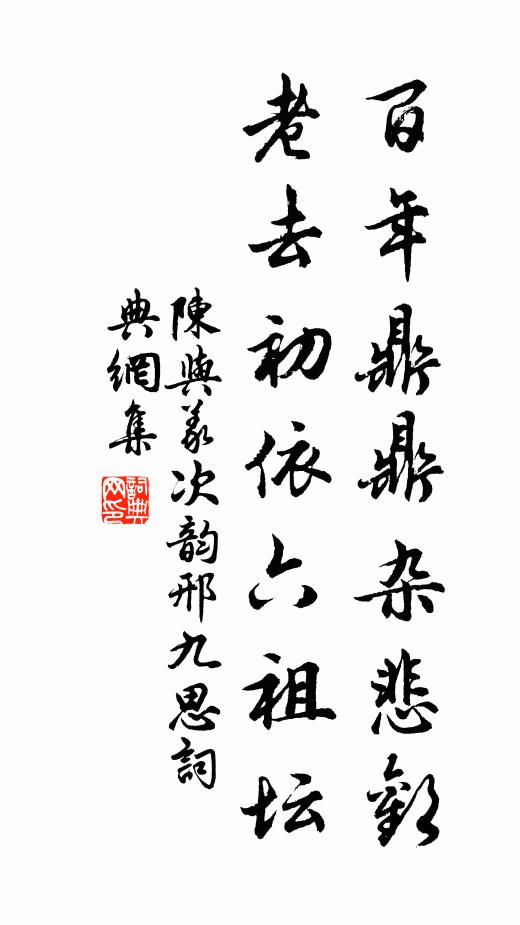 百年鼎鼎杂悲歡
老去初依六祖坛
陳與義次韵邢九思詞
典網集
詞典网印